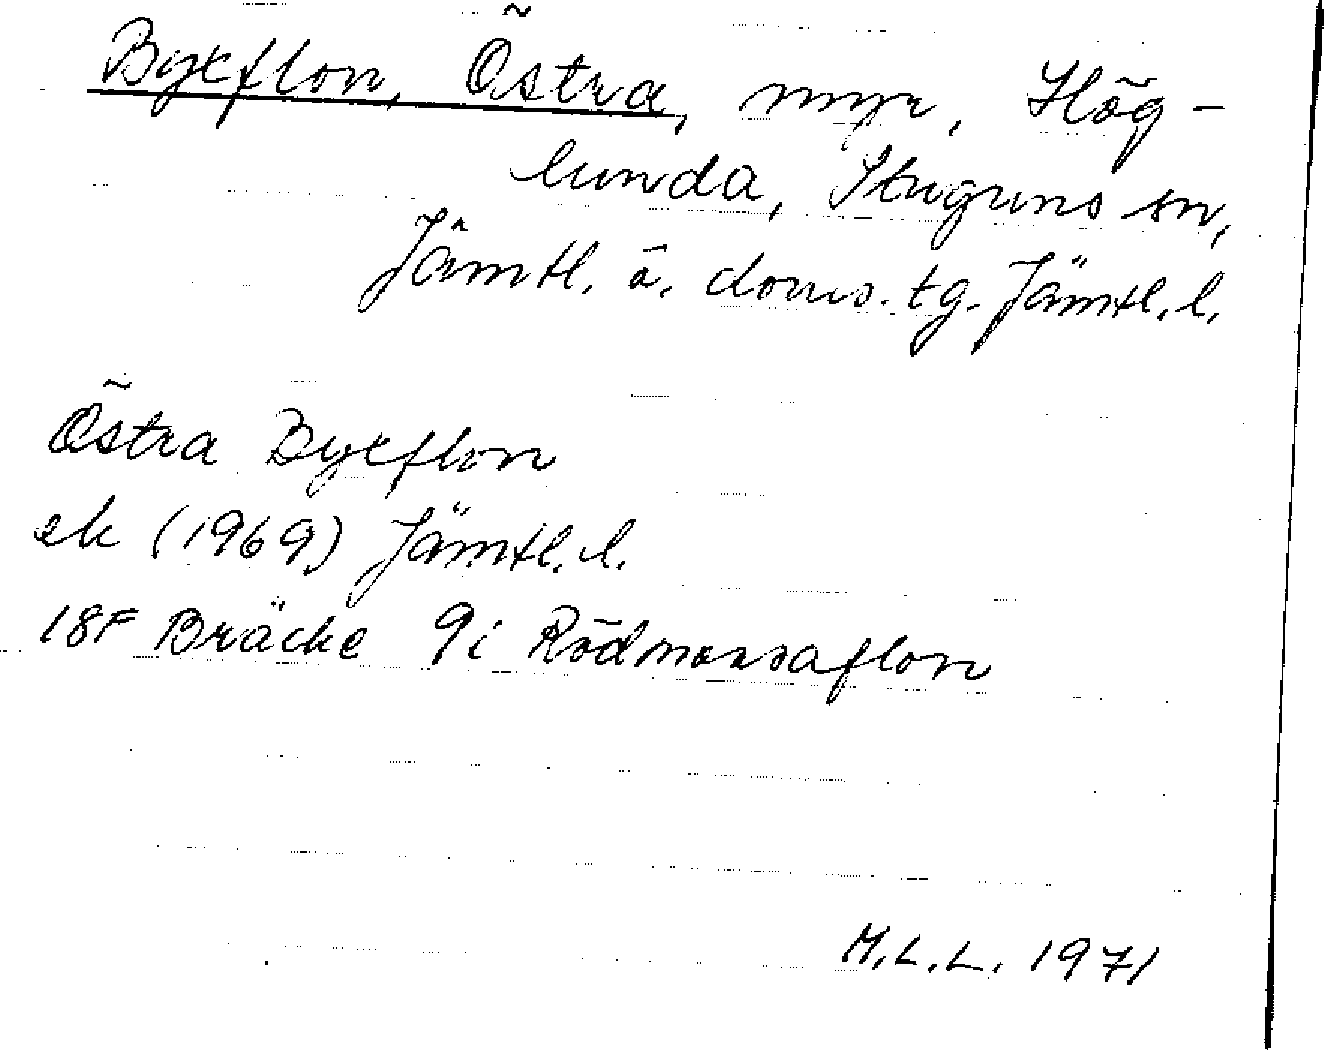 Byxflon, Östra, myr, Hög-
lunda, Stuguns sn,
Jämtl. ö. doms. tg. Jämtl. l.
Östra Byxflon
ek (1969) Jämtl. l.
18F Bräcke 9i Rödmossaflon
M.L.L. 1971